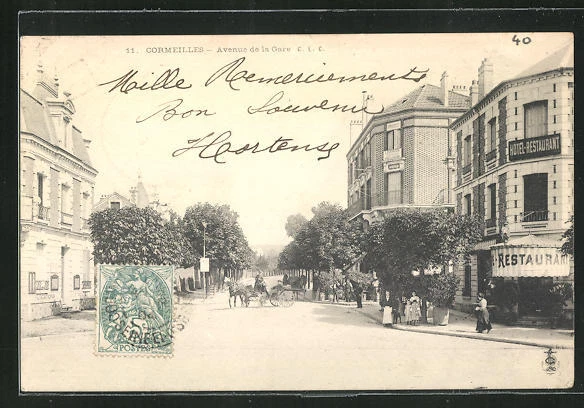 11. CORMEILLES - Avenue de la Gare C. L. C.
40
Mille Remerciements
Bon Souvenir
Hortense
HOTEL-RESTAURANT
RESTAURANT
5
POSTES